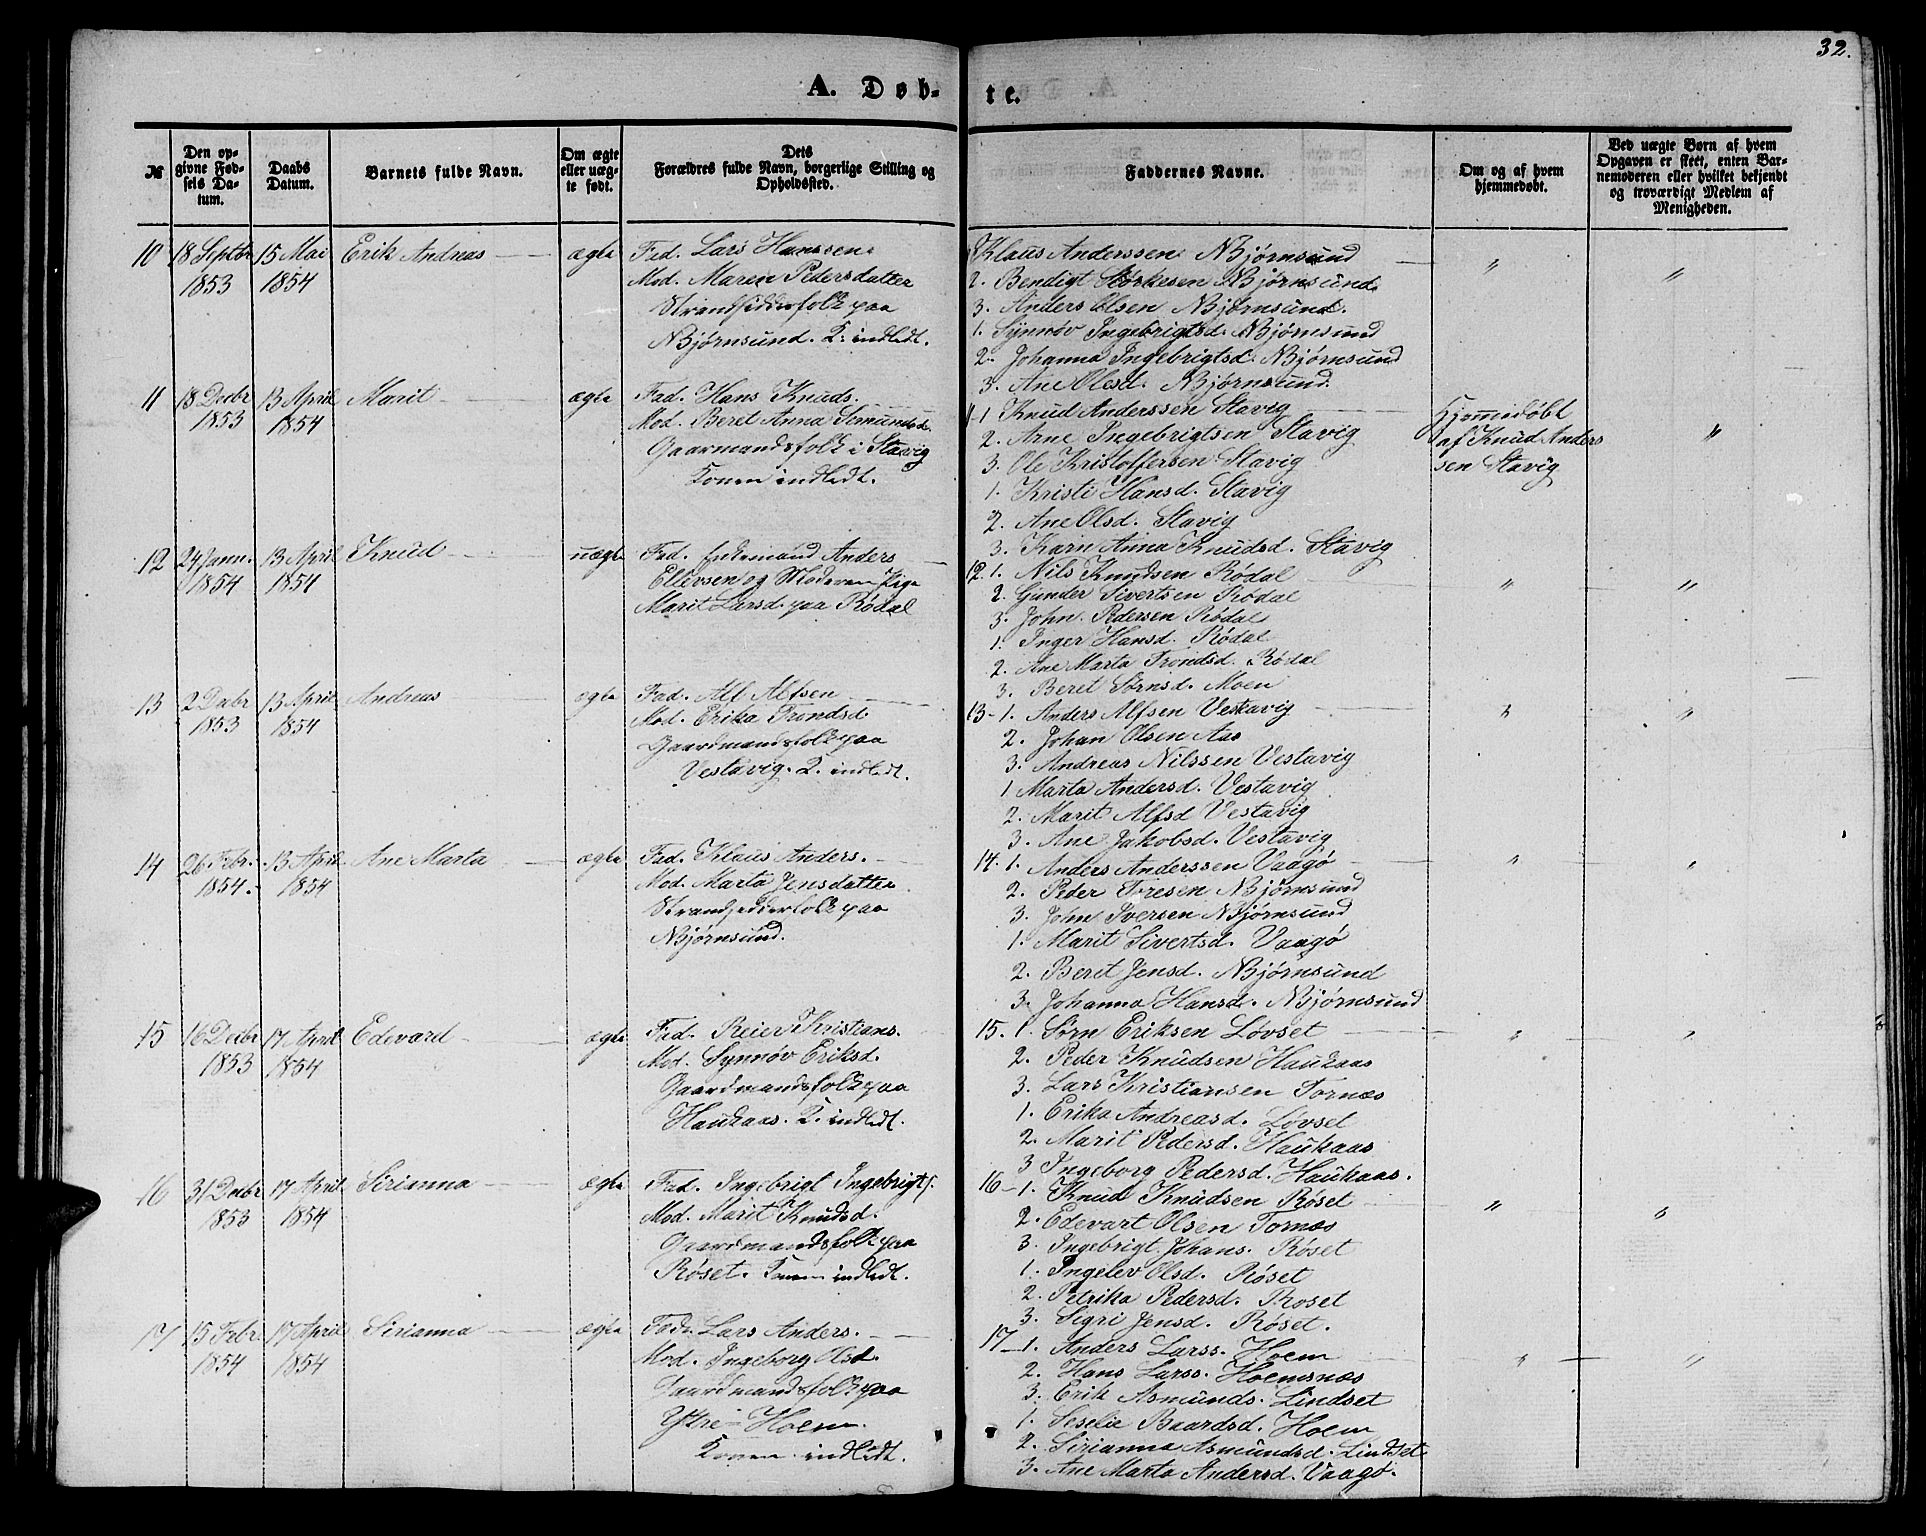 32.
A. Døb-
te.
№
Den op-
givne Fød-
sels Da-
tum.
Daabs
Datum.
Barnets fulde Navn.
Om ægte
eller uæg-
te født.
Dets
Forældres fulde Navn, borgerlige Stilling og
Opholdssted.
Faddernes Navne.
Om og af hvem
hjemmedøbt.
Ved uægte Børn af hvem
Opgaven er skeet, enten Bar-
nemoderen eller hvilket bekjendt
og troværdigt Medlem af
Menigheden.
10 18 Septbr 15 Mai Erik Andreas ægte
1853 1854
Fad. Lars Hanssen
Mod. Maren Pedersdatter
Strandsidderfolk paa
Bjørnsund. K. indledt.
1 Klaus Anderssen Bjørnsund " "
2. Bendigt Størkesen Bjørnsund
3. Anders Olsen Bjørnsund.
1. Synnøv Ingebrigtsd. Bjørnsund
2. Johanna Ingebrigtsd. Bjørnsund
3. Ane Olesd. Bjørnsund.
11 18 Decbr 13 April Marit ægte
1853 1854
Fad. Hans Knuds.
Mod. Beret Anna Semundsd.
Gaarmandsfolk i Stavig
Konen indledt.
11 1 Knud Anderssen Stavig
2. Arne Ingebrigtsen Stavig
3. Ole Kristoffersen Stavig
1. Kristi Hansd. Stavig
2. Ane Olsd. Stavig
3. Karn Anna Knudsd. Stavig
Hjemmedøbt
af Knud Anders
sen Stavig
"
12 24 Janu. 13 April Knud uægte
1854 1854
Fad. Enkemand Anders
Ellevsen og Moderen Pige
Marit Larsd. paa Rødal
12. 1. Nils Knudsen Rødal " "
2. Gunder Sivertsen Rødal
3. John Pedersen Rødal
1. Inger Hansd. Rødal
2. Ane Marta Trondsd. Rødal
3. Beret Sørnsd. Moen
13 2 Decbr 13 April Andreas ægte
1853 1854
Fad. Alf Alfsen
Mod. Erika Trondsd.
Gaardmandsfolk paa
Vestavig. K. indledt.
13-1. Anders Alfsen Vestavig " "
2. Johan Olsen Aas
3. Andreas Nilssen Vestavig
1 Marta Andersd. Vestavig
2. Marit Alfsd Vestavig
3. Ane Jakobsd. Vestavig
14 26 Febr. 13 April Ane Marta ægte
1854. 1854
Fad. Klaus Anders.
Mod. Marta Jensdatter
Strandsidderfolk paa
Bjørnsund.
14. 1. Anders Anderssen Vaagø " "
2. Peder Toresen Bjørnsund
3. John Iversen Bjørnsund
1. Marit Sivertsd. Vaagø
2. Beret Jensd. Bjørnsund
3. Johanna Hansd. Bjørnsund
15 16 Decbr 17 April Edevard ægte
1853 1854
Fad. Reier Kristians.
Mod. Synnøv Eriksd.
Gaardmandsfolk paa
Haukaas. K. indledt.
15. 1. Sørn Eriksen Løvset " "
2. Peder Knudsen Haukaas
3. Lars Kristiansen Tornæs
1. Erika Andreasd. Løvset
2. Marit Pedersd. Haukaas
3 Ingeborg Pedersd. Haukaas.
16 31 Decbr 17 April Sirianna ægte
1853 1854
Fad. Ingebrigt Ingebrigts.
Mod. Marit Knudsd.
Gaardmandsfolk paa
Røset. Konen indledt.
16-1. Knud Knudsen Røset " "
2. Edevart Olsen Tornæs
3. Ingebrigt Johans. Røset
1. Ingelev Olsd. Røset
2. Petrika Pedersd. Røset
3. Sigri Jensd. Røset.
17 15 Febr. 17 April Sirianna ægte
1854 1854
Fad. Lars Anders.
Mod. Ingeborg Olsd.
Gaardmandsfolk paa
Ytre-Hoem.
Konen indledt.
17-1. Anders Larss. Hoem " "
2. Hans Larss. Hoemsnæs
3. Erik Asmunds. Lindset
1. Seselie Baardsd. Hoem
2. Sirianna Asmundsd. Lindset
3. Ane Marta Andersd. Vaagø.